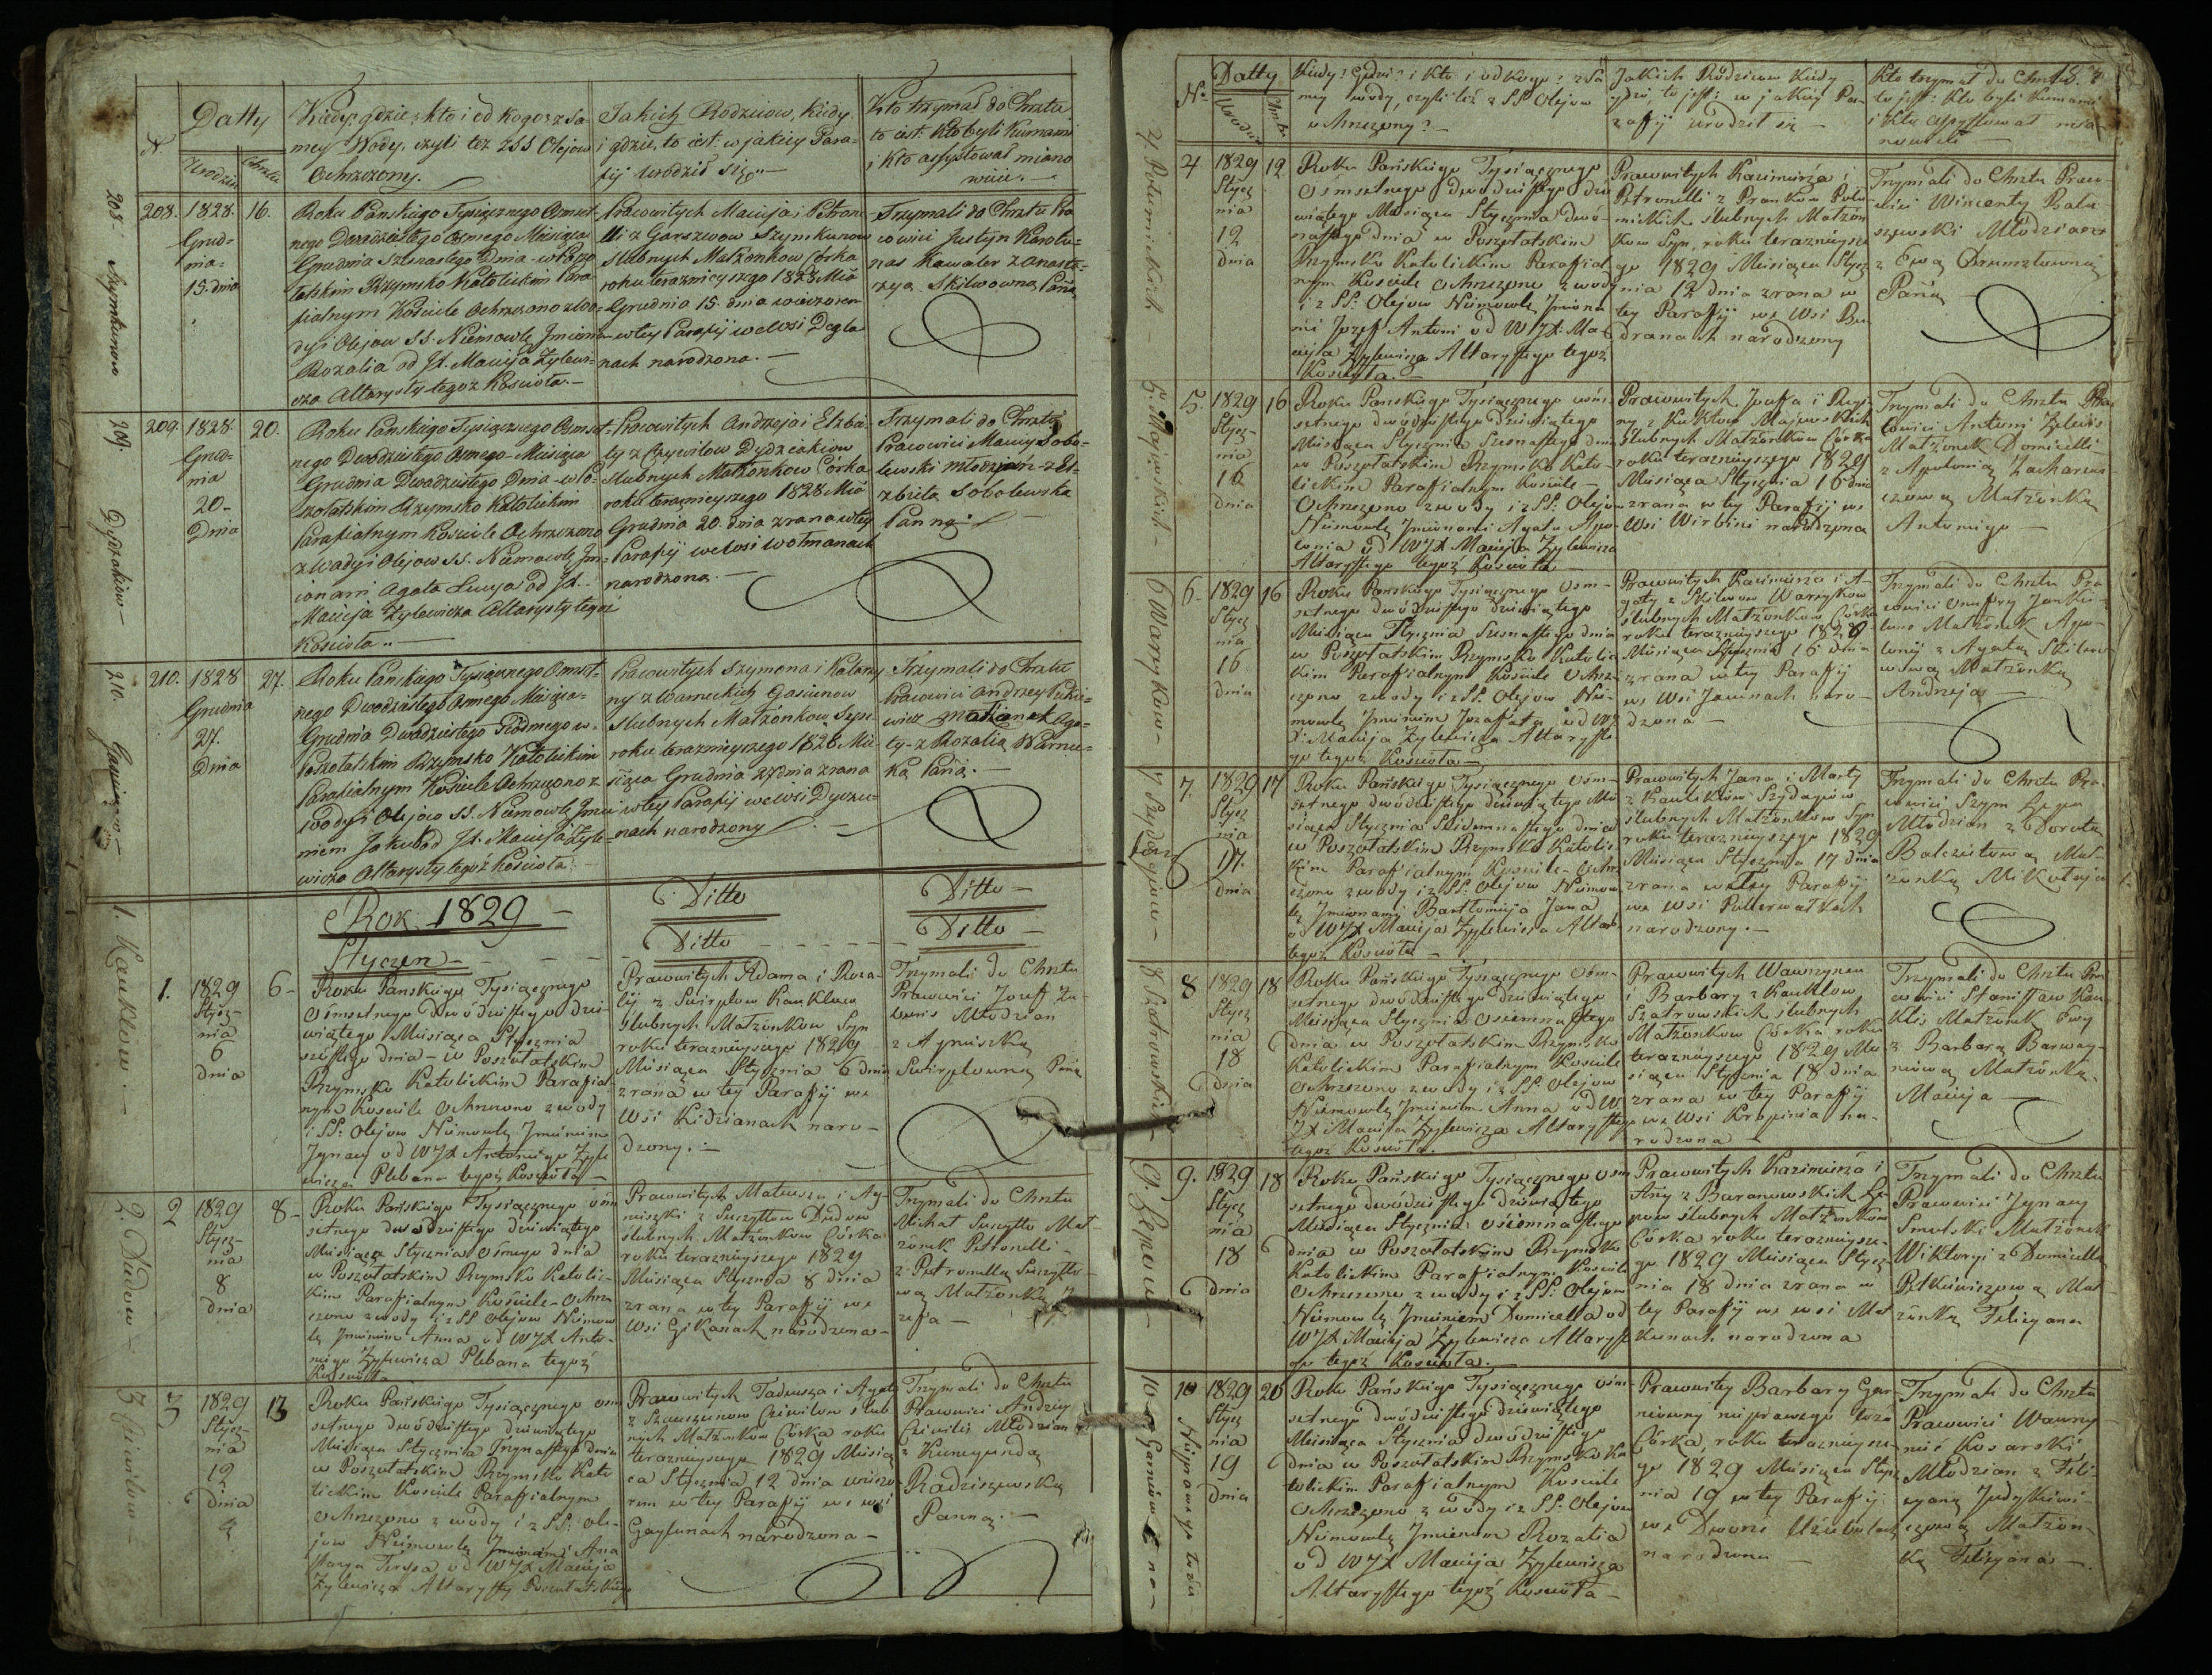 N. Datty
Urodzin Chrztu
Kiedy, gdzie, kto i od kogo z sa-
mey Wody, czyli tez z SS Olejow
Ochrzczony.
Jakich Rodzicow, Kiedy
i gdzie, to iest: w jakiey Para-
fij urodził się
Kto trzymał do Chrztu
to iest: Kto byli Kumami
i Kto assystował miano
wicie
208 Szymkunow
208. 1828. 16.
Grud-
nia
15. dnia
Roku Panskiego Tysiącznego Osmset-
nego Dwudziestego Osmego Miesiąca
Grudnia Szesnastego Dnia - w Poszo
łatskim Rzymsko Katolickim Para
fialnym Kościele Ochrzczono z Wo-
dy i Olejow SS. Niemowlę Jmieniem
Rozalia od Jx. Macieja Zylewi-
cza Altarysty tegoż Kościoła.
Pracowitych Macieja i Petrone-
lli z Garszwow Szymkunow
Slubnych Małżonkow Córka
roku teraznieyszego 1828 Mią
Grudnia 15. dnia wieczorem
w tey Parafij we Wsi Dagla
nach narodzona.
Trzymali do Chrztu Pra
cowici Justyn Karolu-
nas Kawaler z Anasta-
zyą Skilwowną Pañą
209. Dydziakow
209. 1828. 20.
Grud-
nia
20-
Dnia
Roku Panskiego Tysiącznego Osmset-
nego Dwudziestego Osmego Miesiąca
Grudnia Dwudziestego Dnia - w Po-
szołatskim Rzymsko Katolickim
Parafialnym Kościele Ochrzczono
z Wody i Olejow SS. Niemowlę Jm-
ionami Agata Lucya od Jx.
Macieja Zylewicza Altarysty tegoż
Kościoła..
Pracowitych Andrzeja i Elzbie-
ty z Czywilow Dydziakiow
Slubnych Małżonkow Córka
roku teraznieyszego 1828 Mią
Grudnia 20. dnia zrana w tey
Parafij we Wsi Wotmanach
narodzona.
Trzymali do Chrztu
Pracowici Maciey Sobo-
lewski młodzian z El-
zbietą Sobolewską
Panną.
210. Gasiunow
210. 1828 27.
Grudnia
27.
Dnia
Roku Panskiego Tysiącznego Osmset-
nego Dwudziestego Osmego Miesiąca
Grudnia Dwudziestego Siódmego w
Poszołatskim Rzymsko Katolickim
Parafialnym Kościele Ochrzczono z
Wody i Olejow SS. Niemowlę Jmie
niem Jakub od Jx. Macieja Zyle-
wicza Altarysty tegoż Kościoła.
Pracowitych Szymona i Katarzy
ny z Warneckich Gasiunow
Slubnych Małżonkow Syn
roku teraznieyszego 1828 Mie
siąca Grudnia 27 dnia zrana
w tey Parafij we Wsi Dyrzu-
nach narodzony
Trzymali do Chrztu
Pracowici Andrzey
Małżonek Aga-
ty z Rozalią Warnec-
ką Pañą.
Rok 1829
Ditto
Ditto
Styczeń
Ditto
Ditto
1. Kauklow
1. 1829 6
Stycz-
nia
6
dnia
Roku Pańskiego Tysiącznego
Osmsetnego dwódziestego dzie-
wiątego Miesiąca Stycznia
szóstego dnia - w Poszołatskim
Rzymsko Katolickim Parafial
nym Kosciele Ochrzczono z wody
i SS: Olejow Niemowlę Jmieniem
Jgnacy od WJX Antoniego Zyle
wicza Plebana tegoż Kościoła
Prawowitych Adama i Roza-
lij z Swirplow Kauklow
Slubnych Małżonkow Syn
roku teraznieyszego 1829
Miesiąca Stycznia 6 dnia
zrana w tey Parafij we
Wsi Kidzianach naro-
dzony.
Trzymali do Chrztu
Prawowici Jozef
Młodzian
z Agnieszką
Swirplowną Paną
2. Dudow
2 1829 8
Stycz-
nia
8
dnia
Roku Pańskiego Tysiącznego osm
setnego dwódziestego dziewiątego
Miesiąca Stycznia Osmego dnia
w Poszołatskim Rzymsko Katolic-
kim Parafialnym Kościele Ochrz
czono z wody i z SS Olejow Niemow
lę Jmieniem Anna od WJX Anto-
niego Zylewicza Plebana tegoż
Kościoła
Prawowitych Mateusza i Ag
nieszki z Suszytłow Dudow
slubnych Małżonkow Córka
roku teraznieyszego 1829
Miesiąca Stycznia 8 dnia
zrana w tey Parafij we
Wsi Gikanach narodzona
Trzymali do Chrztu
Michał Suszytło Mał-
żonek Petronelli
z Petronellą Suszytło-
wą Małżonką Jo
zefa
3 Cziwilow
3 1829 13
Stycz-
nia
12
dnia
Roku Pańskiego Tysiącznego osm
setnego dwódziestego dziewiątego
Miesiąca Stycznia Trzynastego dnia
w Poszołatskim Rzymsko Kato
lickim Kosciele Parafialnym
Ochrzczono z wody i z SS: Ole-
jow Niemowlę Jmionami Ana
stazya Teressa od WJX Macieja
Zylewicza Altarysty Poszołatskiego
Prawowitych Tadeusza i Agaty
z Cziwilow slub
nych Małżonkow Córka roku
teraznieyszego 1829 Miesią
ca Stycznia 12 dnia wieczo
rem w tey Parafij we wsi
Gaylunach narodzona
Trzymali do Chrztu
Prawowici Andrzey
Cziwilis Młodzian
z Kunegundą
Radziszewską
Panną.
N. Datty
Urodzin Chrztu
Kiedy? Gdzie? i Kto i od Kogo? z sa
mey wody, czyli też z SS Olejow
ochrzczony?
Jakich Rodzicow Kiedy
gdzie, to jest: w jakiey Pa-
rafij urodził się
Kto trzymał do Chrztu?
to jest: Kto byli Kumami
i Kto assystował mia-
nowicie
4 Połumickich
4 1829 12
Stycz
nia
12
dnia
Roku Pańskiego Tysiącznego
Osmsetnego dwódziestego dzie
wiątego Miesiąca Stycznia dwó-
nastego dnia w Poszołatskim
Rzymsko Katolickim Parafial
nym Kosciele Ochrzczono z wody
i z SS: Olejow Niemowlę Jmiona
mi Jozef Antoni od WJX: Ma-
cieja Zylewicza Altarystego tegoż
Kościoła.
Prawowitych Kazimierza i
Petronelli z Prankow Połu-
mickich slubnych Małżon
kow Syn, roku teraznieysze
go 1829 Miesiąca Stycz
nia 12 dnia zrana w
tey Parafij we Wsi Bu
dranach narodzony
Trzymali do Chrztu Praw-
owici Wincenty Balu
szewski Młodzian
z Ewą
Pañą
5. Majewskich
5. 1829 16
Stycz-
nia
16
dnia
Roku Pańskiego Tysiącznego ośm
setnego dwódziestego dziewiątego
Miesiąca Stycznia Szesnastego dnia
w Poszołatskim Rzymsko Kato-
lickim Parafialnym Kosciele
Ochrzczono z wody i z SS: Olejow
Niemowlę Jmionami Agata Apo-
lonia od WJX Macieja Zylewicza
Altarystego tegoż Kościoła
Prawowitych Jozefa i Regi-
ny z Kuklow Majewskich
slubnych Małżonkow Córka
roku teraznieyszego 1829
Miesiąca Stycznia 16 dnia
zrana w tey Parafij we
Wsi Wirbini narodzona
Trzymali do Chrztu Pra
cowici Antoni Zylewis
Małżonek Domicelli
z Apolonią Zacharze
czową Małżonką
Antoniego
6 Warykow
6. 1829 16
Stycz
nia
16
dnia
Roku Pańskiego Tysiącznego Osm-
setnego dwódziestego dziewiątego
Miesiąca Stycznia Szesnastego dnia
w Poszołatskim Rzymsko Katolic
kim Parafialnym Kosciele Ochrz-
czono z wody i z SS. Olejow Nie-
mowlę Jmieniem Jozefata od WJ
X Macieja Zylewicza Altaryste-
go tegoż Kościoła
Prawowitych Kazimierza i A-
gaty z Skilwow Warrykow
slubnych Małżonkow Córka
roku teraznieyszego 1829
Miesiąca Stycznia 16 dnia
zrana w tey Parafij
we Wsi Jawnach naro-
dzona
Trzymali do Chrztu Pra
cowici Onufry
Małżonek Apo-
lonij z Agatą Skilwo-
wową Małżonką
Andrzeja
7 Szydagiow
7. 1829 17
Stycz
nia
17.
dnia
Roku Pańskiego Tysiącznego Osm-
setnego dwódziestego dziewiątego Mie
siąca Stycznia Siedemnastego dnia
w Poszołatskim Rzymsko Katolic
kim Parafialnym Kosciele Ochrz
czono z wody i z SS: Olejow Niemow
lę Jmionami Bartłomieja Jana
od WJX Macieja Zylewicza Altar
tegoż Kościoła
Prawowitych Jana i Marty
z Kauklow Szydagiow
slubnych Małżonkow Syn
roku teraznieyszego 1829
Miesiąca Stycznia 17 dnia
zrana w tey Parafij
we Wsi Pollerwatkach
narodzony.
Trzymali do Chrztu Pra
cowici Szym
Młodzian z Dorotą
Balczutową Mał-
żonką Mikołaja
8 Szatrowskich
8 1829 18
Stycz
nia
18
dnia
Roku Pańskiego Tysiącznego Osm-
setnego dwódziestego dziewiątego
Miesiąca Stycznia Osiemnastego
dnia w Poszołatskim Rzymsko
Katolickim Parafialnym Kosciele
Ochrzczono z wody i z SS Olejow
Niemowlę Jmieniem Anna od W
JX Macieja Zylewicza Altarystego
tegoż Kościoła.
Prawowitych Wawrzynca
i Barbary z Kauklow
Szatrowskich slubnych
Małżonkow Córka roku
teraznieyszego 1829 Mie
siąca Stycznia 18 dnia
zrana w tey Parafij
we Wsi Kropinia na-
rodzona
Trzymali do Chrztu Pra
cowici Stanisław Kau
klis Małżonek Ewy
z Barbarą Barway-
niową Małżonką
Macieja
9. Lepow
9. 1829 18
Stycz
nia
18
dnia
Roku Pańskiego Tysiącznego Osm
setnego dwódziestego dziewiątego
Miesiąca Stycznia Ośiemnastego
dnia w Poszołatskim Rzymsko
Katolickim Parafialnym Kosciele
Ochrzczono z wody i z SS. Olejow
Niemowlę Jmieniem Domicella od
WJX Macieja Zylewicza Altaryst
go tegoż Kościoła.
Prawowitych Kazimierza i
z Baranowskich Le-
pow slubnych Małżonkow
Córka roku teraznieysze-
go 1829 Miesiąca Stycz
nia 18 dnia zrana w
tey Parafij we wsi Mat
kunach narodzona
Trzymali do Chrztu
Prawowici Jgnacy
Smolski Małżonek
Wiktoryi z Domicellą
Petkiewiczową Mał-
żonką Felicyana
10 Garniow
Nieprawego łoża
10 1829 20
Stycz
nia
19
dnia
Roku Pańskiego Tysiącznego ośm-
setnego dwódziestego dziewiątego
Miesiąca Stycznia dwódziestego
dnia w Poszołatskim Rzymsko Ka
tolickim Parafialnym Kosciele
Ochrzczono z wody i z SS: Olejow
Niemowlę Jmieniem Rozalia
od WJX Macieja Zylewicza
Altarystego tegoż Kosciola
Prawowitey Barbary Gar-
niowny nieprawego łoża
Córka, roku teraznieysze-
go 1829 Miesiąca Stycz
nia 19 w tey Parafij
we Dworze
narodzona
Trzymali do Chrztu
Prawowici Wawrzy-
niec Kosarski
Młodzian z Feli-
cyaną Judykiewi-
czową Małżon-
ką Felicyana